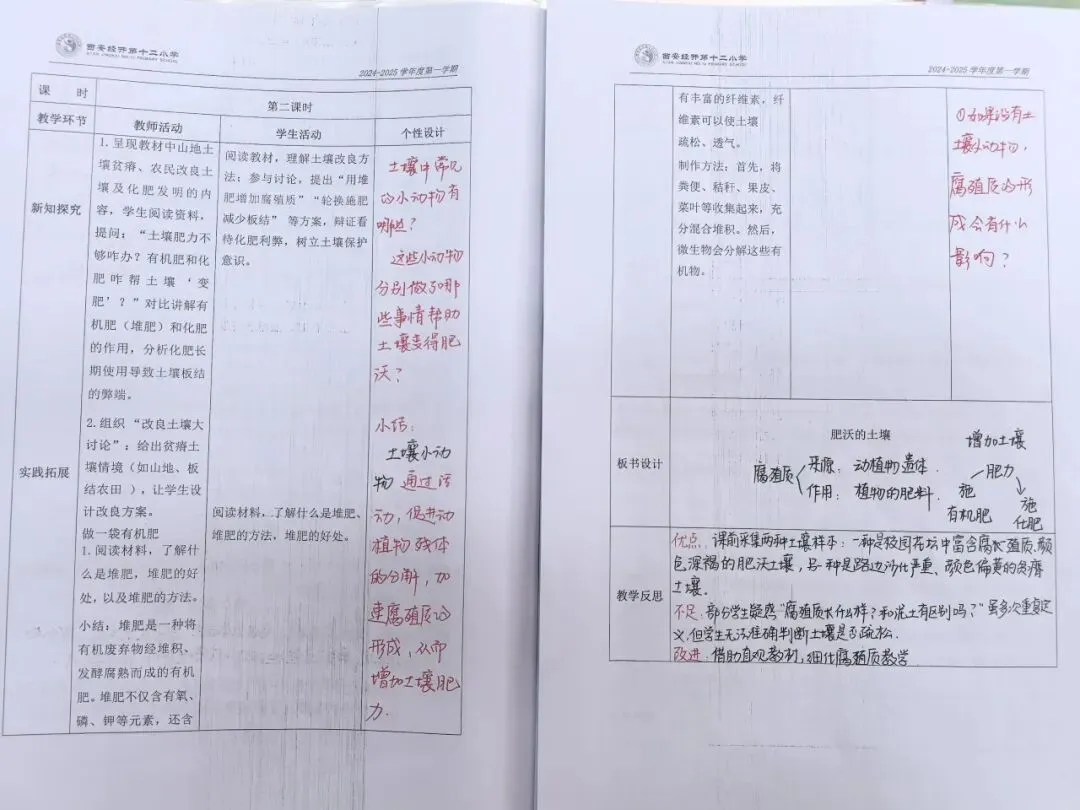 西安经开第十二小学
2024-2025 学年度第一学期
课 时
第二课时
教学环节
教师活动
学生活动
个性设计
新知探究
1. 呈现教材中山地土
壤贫瘠、农民改良土
壤及化肥发明的内
容，学生阅读资料，
提问：“土壤肥力不
够咋办？有机肥和化
肥咋帮土壤‘变
肥’？”对比讲解有
机肥（堆肥）和化肥
的作用，分析化肥长
期使用导致土壤板结
的弊端。
阅读教材，理解土壤改良方
法；参与讨论，提出“用堆
肥增加腐殖质”“轮换施肥
减少板结”等方案，辩证看
待化肥利弊，树立土壤保护
意识。
土壤中常见
的小动物有
哪些？
这些小动物
分别做了哪
些事情帮助
土壤变得肥
沃？
实践拓展
2. 组织“改良土壤大
讨论”：给出贫瘠土
壤情境（如山地、板
结农田），让学生设
计改良方案。
做一袋有机肥
1. 阅读材料，了解什
么是堆肥，堆肥的好
处，以及堆肥的方法。
小结：堆肥是一种将
有机废弃物经堆积、
发酵腐熟而成的有机
肥。堆肥不仅含有氧、
磷、钾等元素，还含
阅读材料，了解什么是堆肥、
堆肥的方法，堆肥的好处。
小结：
土壤小动
物 通过活
动，促进动
植物残体
的分解，加
速腐殖质的
形成，从而
增加土壤肥
力.
西安经开第十二小学
2024-2025 学年度第一学期
有丰富的纤维素，纤
维素可以使土壤
疏松、透气。
制作方法：首先，将
粪便、秸秆、果皮、
菜叶等收集起来，充
分混合堆积。然后，
微生物会分解这些有
机物。
①如果没有土
壤小动物，
腐殖质的形
成会有什么
影响？
板书设计
肥沃的土壤
腐殖质
来源：动植物遗体.
作用：植物的肥料.
增加土壤
肥力
施
有机肥
施
化肥
教学反思
优点. 课前采集两种土壤样本：一种是校园花坛中富含腐殖质、颜
色深褐的肥沃土壤，另一种是路边沙化严重、颜色偏黄的贫瘠
土壤.
不足：部分学生疑惑“腐殖质长什么样？和泥土有区别吗？”虽多次重复定
义，但学生无法准确判断土壤是否疏松.
改进：借助直观教材，细化腐殖质教学